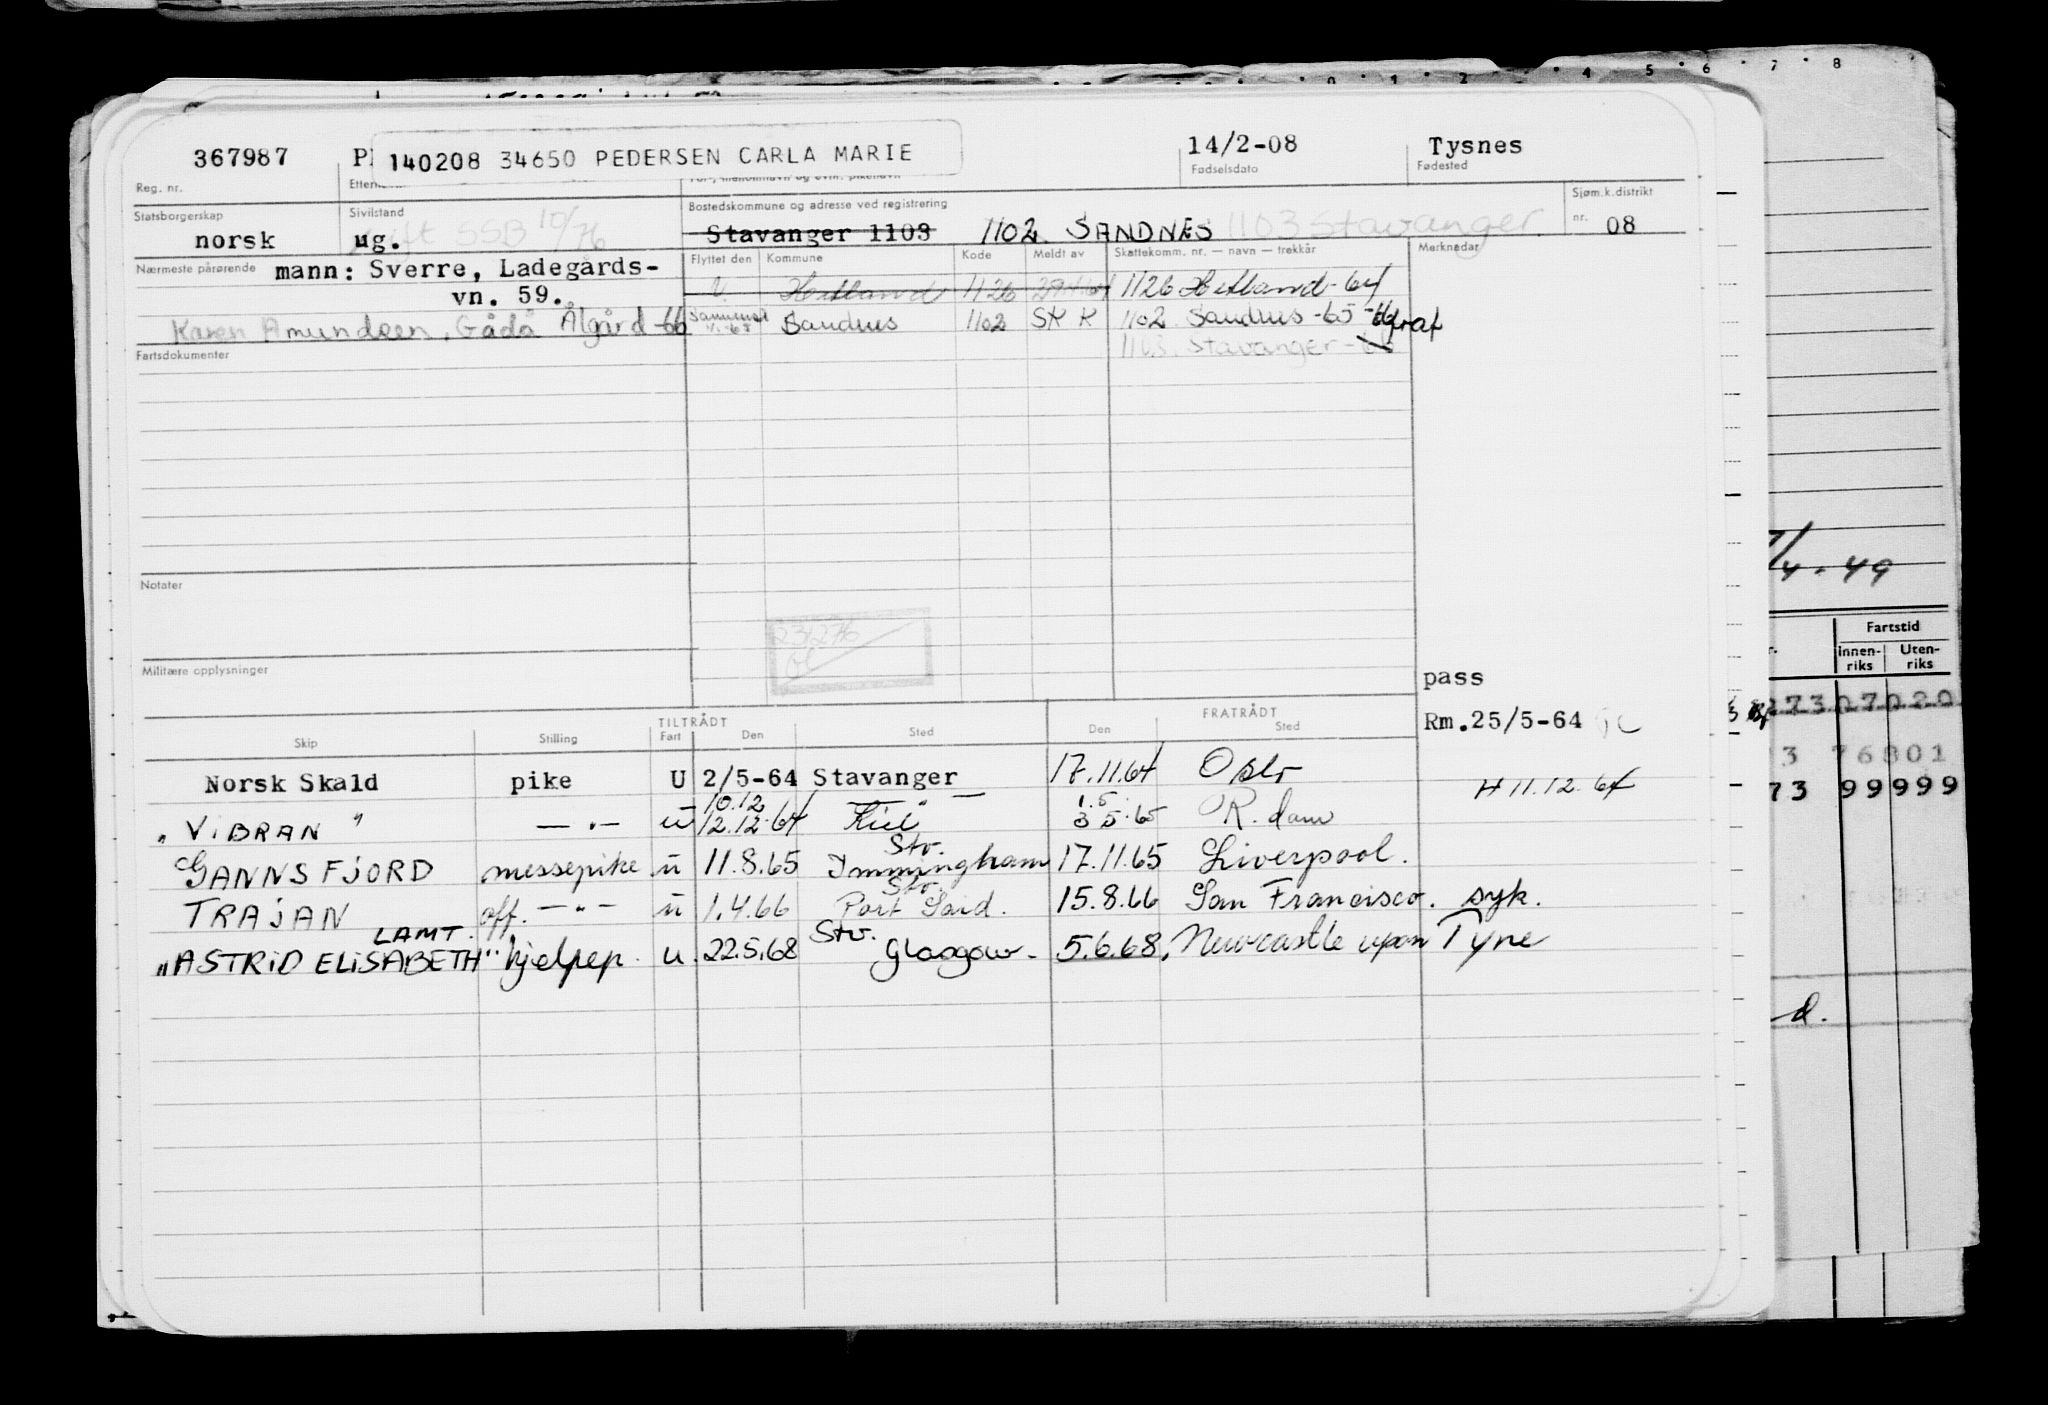 367987 140208 34650 PEDERSEN CARLA MARIE 14/2-08 Tysnes
Reg. nr. Fødselsdato Fødested
Statsborgerskap Sivilstand Bostedskommune og adresse ved registrering Sjøm.k.distrikt
norsk ug. gift SSB 10/76 Stavanger 1103 1102 SANDNES 1103 Stavanger nr. 08
Nærmeste pårørende mann: Sverre, Ladegårds- Flyttet den Kommune Kode Meldt av Skattekomm. nr. — navn — trekkår Merknader
vn. 59. Hetland 1126 1126 Hetland-64
Karen Amundsen, Gådå Ålgård-66 Sandnes 1102 SK K 1102 Sandnes -65-66
Fartsdokumenter 1103 Stavanger-
Notater
Militære opplysninger
pass
TILTRÅDT FRATRÅDT Rm.25/5-64
Skip Stilling Fart Den Sted Den Sted
Norsk Skald pike U 2/5-64 Stavanger 17.11.64 Oslo
10.12 1.5 H 11.12.64
"VIBRAN" — " — u 12.12.64 Kiel 3 5.65 R.dam
Stv.
GANNSFJORD messepike u 11.8.65 Immingham 17.11.65 Liverpool.
Stv.
TRAJAN off. — " — u 1.4.66 Port Said. 15.8.66 San Francisco. syk.
LAMT. Stv.
"ASTRID ELISABETH" hjelpep. u. 22.5.68 Glasgow- 5.6.68. Newcastle upon Tyne
0 1 2 4 5 6 7 8
/4-49
Fartstid
Innen-riks Uten-riks
273 07020
3 76801
73 99999
d.